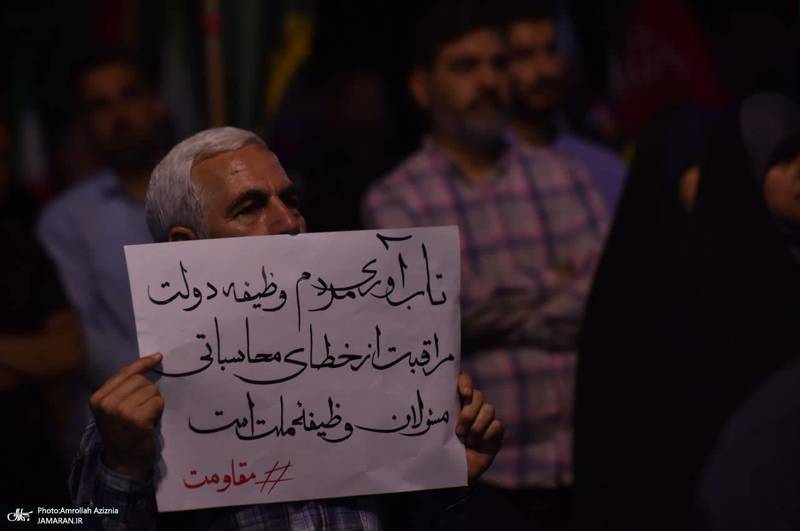 تاب‌آوری مردم وظیفه دولت
مراقبت از خطای محاسباتی
مسئولان وظیفهٔ ملت است
#مقاومت
Photo:Amrollah Aziznia
JAMARAN.IR